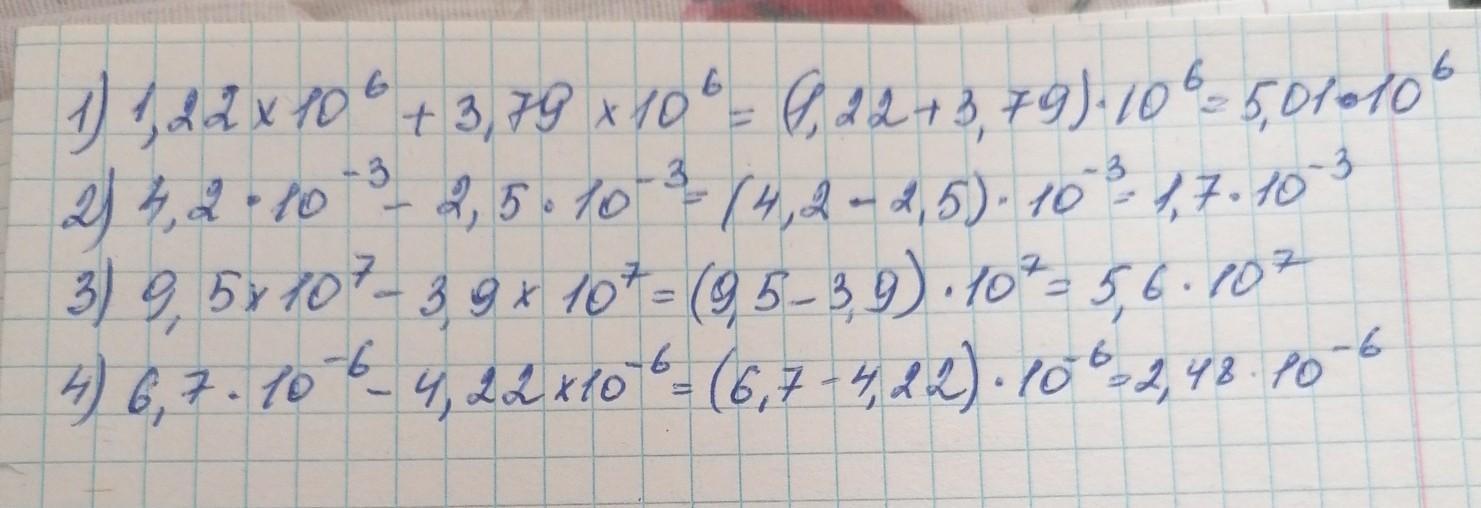 1) 1,22 × 10⁶ + 3,79 × 10⁶ = (1,22 + 3,79) · 10⁶ = 5,01 · 10⁶
2) 4,2 · 10⁻³ - 2,5 · 10⁻³ = (4,2 - 2,5) · 10⁻³ = 1,7 · 10⁻³
3) 9,5 × 10⁷ - 3,9 × 10⁷ = (9,5 - 3,9) · 10⁷ = 5,6 · 10⁷
4) 6,7 · 10⁻⁶ - 4,22 × 10⁻⁶ = (6,7 - 4,22) · 10⁻⁶ = 2,48 · 10⁻⁶